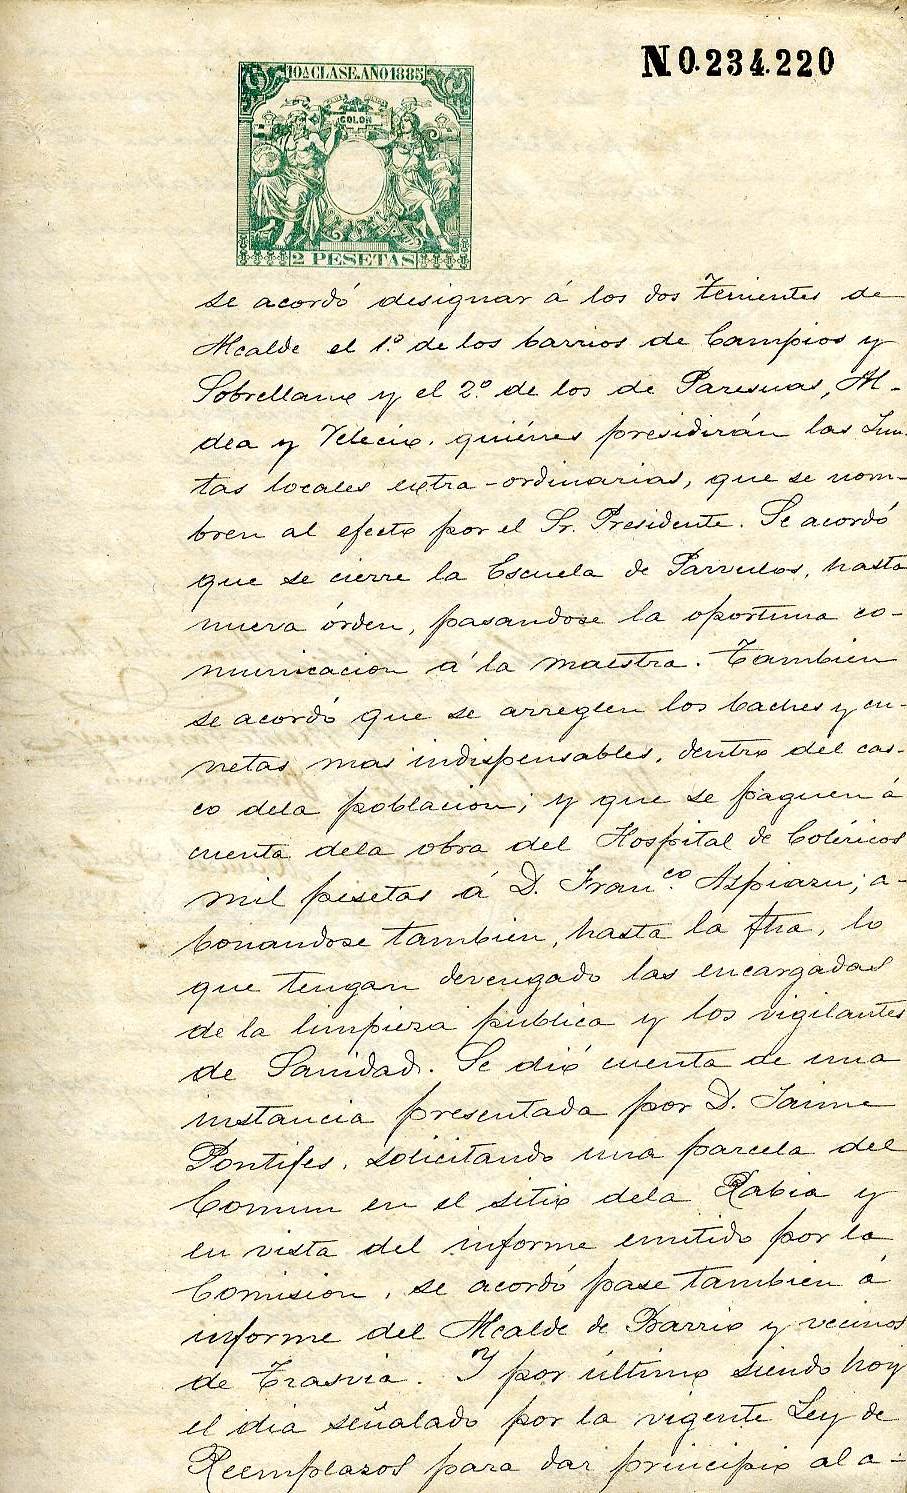 N 0.234.220
10ª CLASE. AÑO 1885
COLON
2 PESETAS
se acordó designar á los dos Tenientes de
Alcalde el 1.º de los barrios de Campios y
Sobrellano y el 2.º de los de Paresuas, Al-
dea y Velecio. quiénes presidirán las Jun-
tas locales extra-ordinarias, que se nom-
bren al efecto por el Sr. Presidente. Se acordó
que se cierre la Escuela de Parvulos, hasta
nueva órden, pasandose la oportuna co-
municacion á la maestra. Tambien
se acordó que se arreglen los baches y cu-
netas mas indispensables, dentro del cas-
co dela poblacion; y que se paguen á
cuenta dela obra del Hospital de Coléricos
mil pesetas á D. Fran.co Azpiazu; a-
bonandose tambien, hasta la fha, lo
que tengan devengado las encargadas
de la limpieza publica y los vigilantes
de Sanidad. Se dió cuenta de una
instancia presentada por D. Jaime
Pontifes, solicitando una parcela del
Comun en el sitio dela Rabia y
en vista del informe emitido por la
Comision, se acordó pase tambien á
informe del Alcalde de Barrio y vecinos
de Trasvia. Y por último siendo hoy
el dia señalado por la vigente Ley de
Reemplazos para dar principio al a-